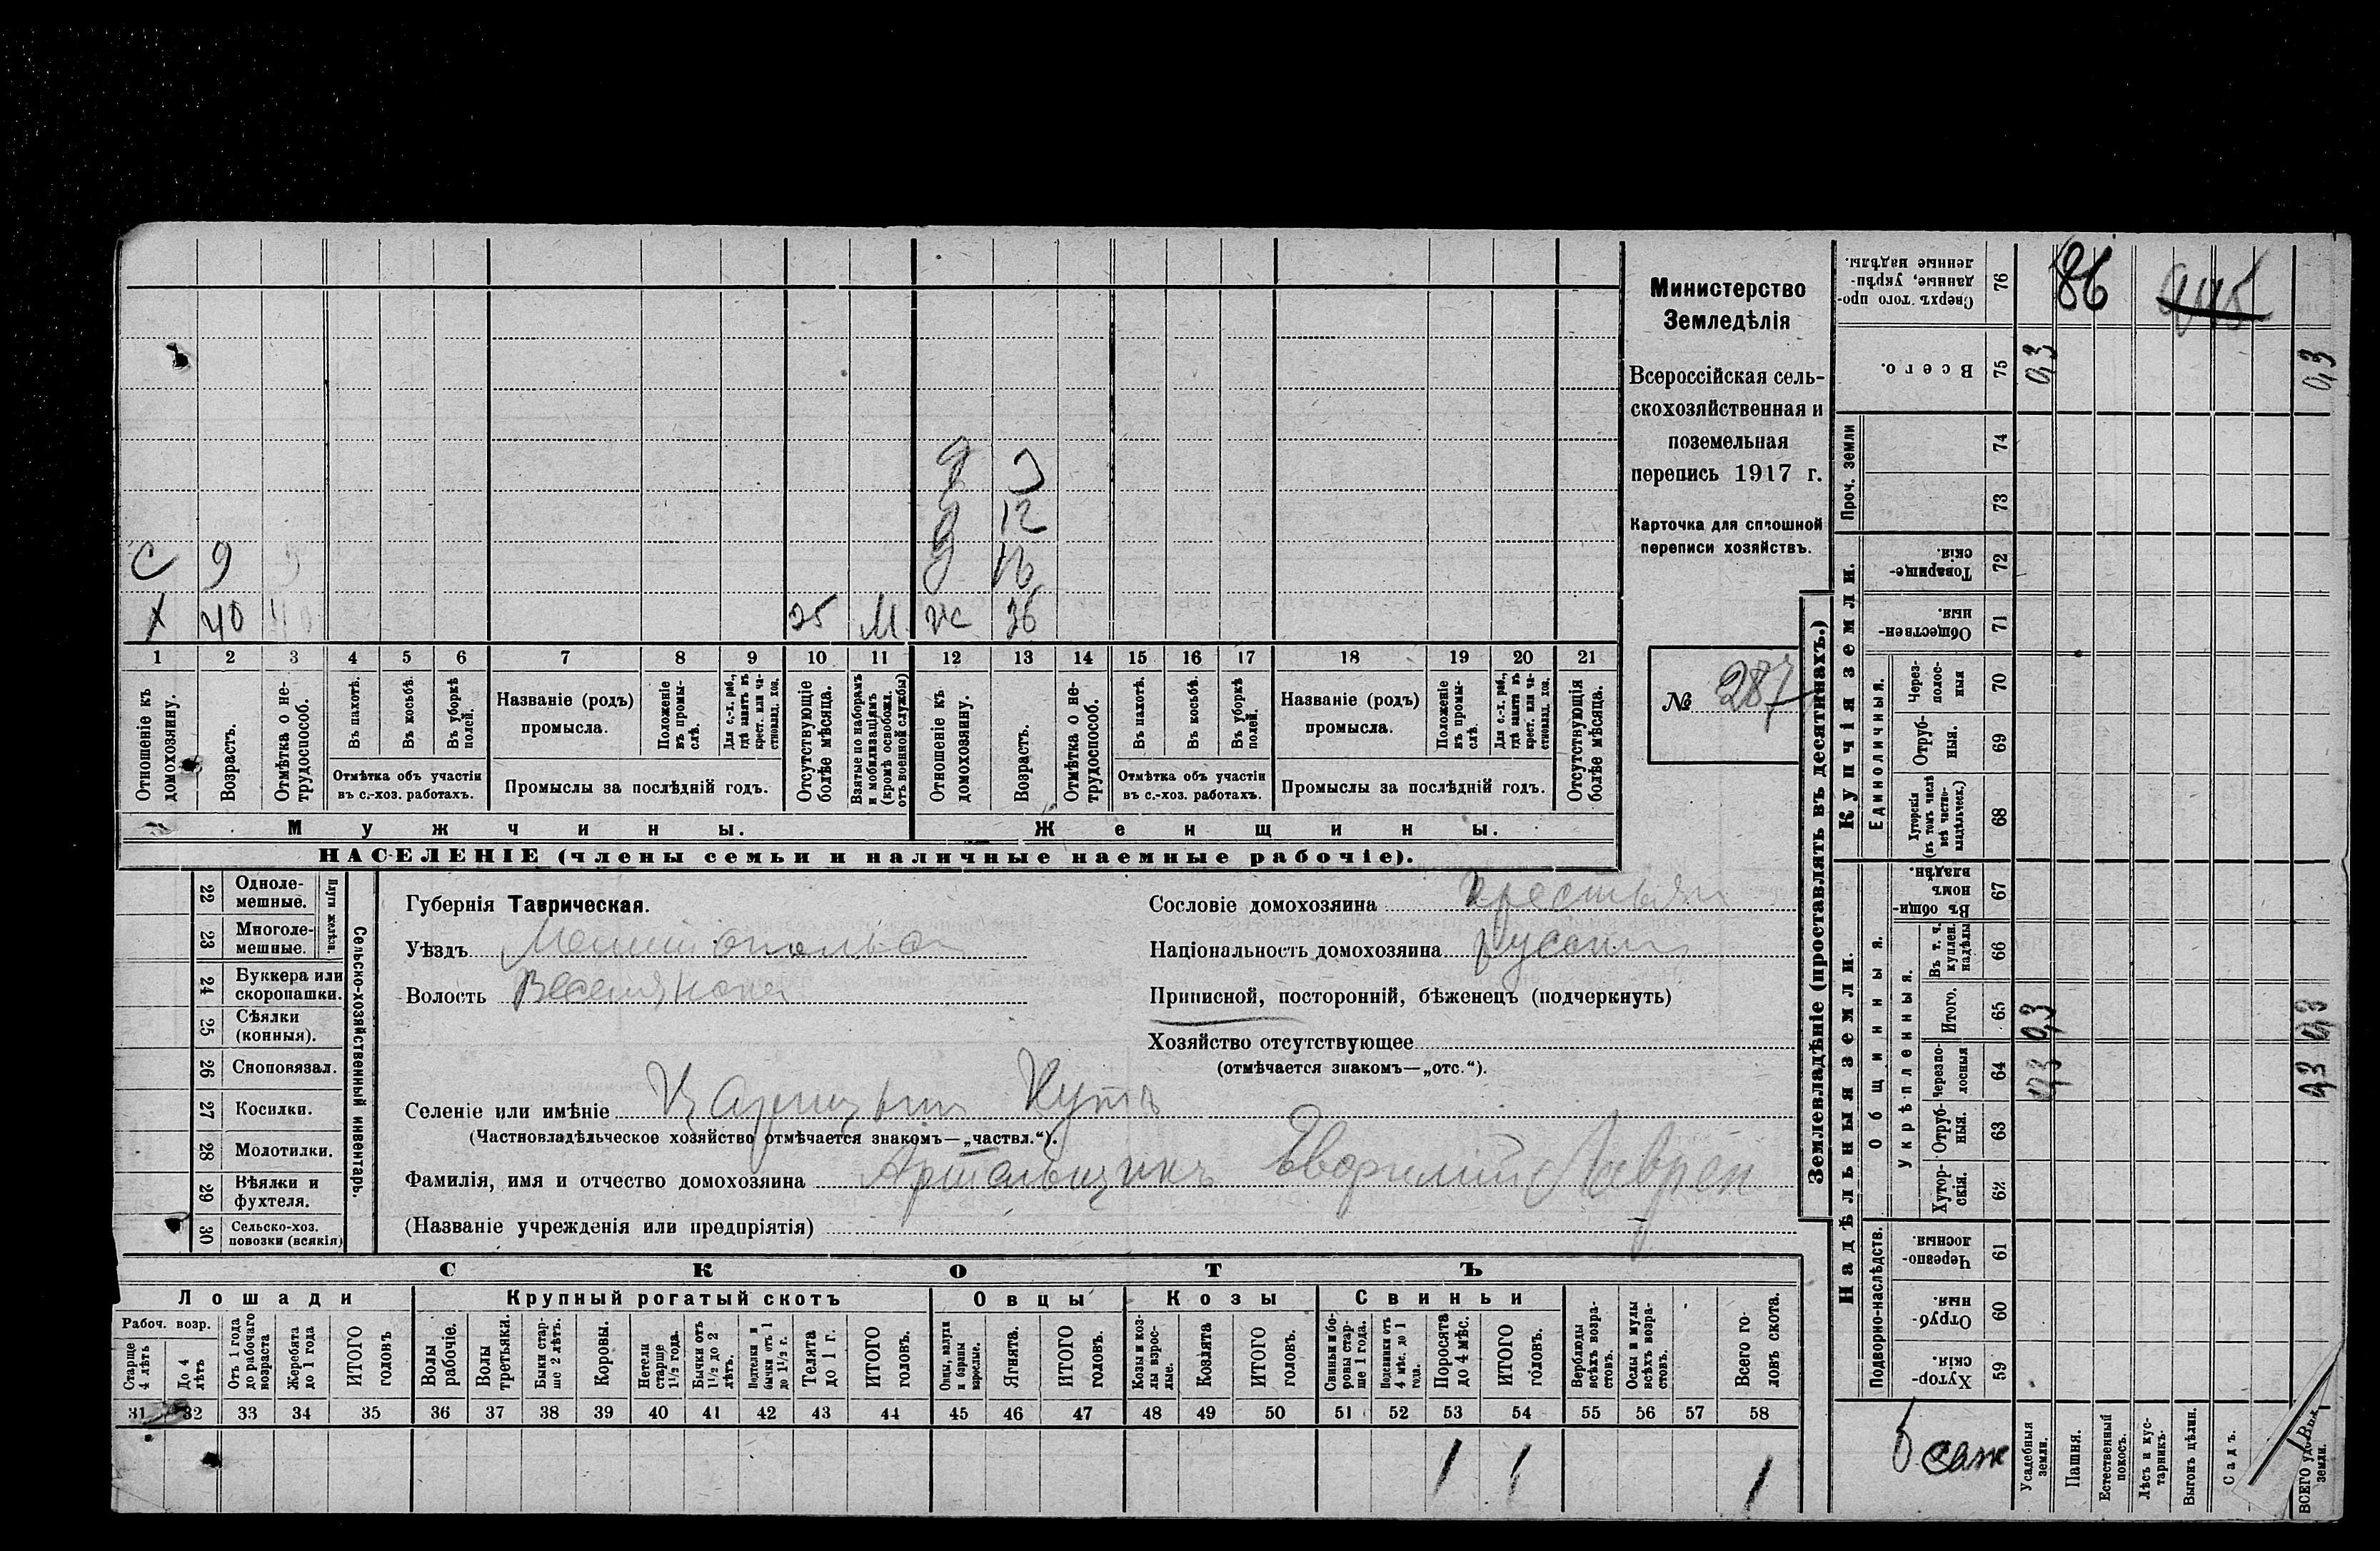 С 9
Х 40 40 25 М
д
д 12
д 16
ж 36
1 2 3 4 5 6 7 8 9 10 11 12 13 14 15 16 17 18 19 20 21
Отношеніе къ домохозяину.
Возрастъ.
Отмѣтка о нетрудоспособ.
Въ пахотѣ.
Въ косьбѣ.
Въ уборкѣ полей.
Отмѣтка объ участіи
въ с.-хоз. работахъ.
Названіе (родъ)
промысла.
Положеніе въ промыслѣ.
Для с.-х. раб., гдѣ занятъ въ крест. или частновлад. хоз.
Промыслы за послѣдній годъ.
Отсутствующіе болѣе мѣсяца.
Взятые по наборамъ и мобилизаціямъ (кромѣ освобожд. отъ военной службы)
Отношеніе къ домохозяину.
Возрастъ.
Отмѣтка о нетрудоспособ.
Въ пахотѣ.
Въ косьбѣ.
Въ уборкѣ полей.
Отмѣтка объ участіи
въ с.-хоз. работахъ.
Названіе (родъ)
промысла.
Положеніе въ промыслѣ.
Для с.-х. раб., гдѣ занята въ крест. или частновлад. хоз.
Промыслы за послѣдній годъ.
Отсутствующія болѣе мѣсяца.
Мужчины.
Женщины.
НАСЕЛЕНІЕ (члены семьи и наличные наемные рабочіе).
Министерство
Земледѣлія
Всероссійская сель-
скохозяйственная и
поземельная
перепись 1917 г.
Карточка для сплошной
переписи хозяйствъ.
№ 287
Сельско-хозяйственный инвентарь.
Плуги желѣзн.
22 Одноле-
мешные.
23 Многоле-
мешные.
24 Буккера или
скоропашки.
25 Сѣялки
(конныя).
26 Сноповязал.
27 Косилки.
28 Молотилки.
29 Вѣялки и
фухтеля.
30 Сельско-хоз.
повозки (всякія)
Губернія Таврическая.
Уѣздъ
Волость
Селеніе или имѣніе Царицынъ Кутъ
(Частновладѣльческое хозяйство отмѣчается знакомъ—„частвл.“).
Фамилія, имя и отчество домохозяина Артельщикъ Лаврен
(Названіе учрежденія или предпріятія)
Сословіе домохозяина крестьян
Національность домохозяина русскій
Приписной, посторонній, бѣженецъ (подчеркнуть)
Хозяйство отсутствующее
(отмѣчается знакомъ—„отс.“).
СКОТЪ
Лошади
Рабоч. возр.
Старше 4 лѣтъ
До 4 лѣтъ
Отъ 1 года до рабочаго возраста
Жеребята до 1 года
ИТОГО головъ
Крупный рогатый скотъ
Волы рабочіе.
Волы третьяки.
Быки старше 2 лѣтъ.
Коровы.
Нетели старше 1½ года.
Бычки отъ 1½ до 2 лѣтъ.
Подтелки и бычки отъ 1 до 1½ г.
Телята до 1 г.
ИТОГО головъ.
Овцы
Овцы, валухи и бараны взрослые.
Ягнята.
ИТОГО головъ.
Козы
Козы и козлы взрослые.
Козлята
ИТОГО головъ.
Свиньи
Свиньи и боровы старше 1 года.
Подсвинки отъ 4 мѣс. до 1 года.
Поросята до 4 мѣс.
ИТОГО головъ.
Верблюды всѣхъ возрастовъ.
Ослы и мулы всѣхъ возрастовъ.
Всего головъ скота.
31 32 33 34 35 36 37 38 39 40 41 42 43 44 45 46 47 48 49 50 51 52 53 54 55 56 57 58
1 1 1
Землевладѣніе (проставлять въ десятинахъ.)
Купчія земли.
Надѣльныя земли.
Сверхъ того проданные, укрѣпленные надѣлы. 76 86
Всего. 75 0,3 0,3
Проч. земли
74
73
Товарищескія. 72
Общественныя. 71
Единоличныя.
Черезполосныя 70
Отрубныя. 69
Хуторскія (въ томъ числѣ всѣ частновладѣльческ.) 68
Общинныя.
Въ общинномъ владѣн. 67
Укрѣпленныя.
Въ т. ч. куплен. надѣлы 66
Итого. 65 0,3 0,3
Черезполосныя 64 0,3 0,3
Отрубныя. 63
Хуторскія. 62
Подворно-наслѣдств.
Черезполосныя 61
Отрубныя. 60
Хуторскія. 59
саж
Усадебныя земли.
Пашня.
Естественный покосъ.
Лѣсъ и кустарникъ.
Выгонъ цѣлин.
Садъ.
ВСЕГО
земли.